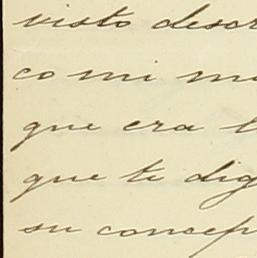 visto desor
co mi m
que era l
que te dig
su concep